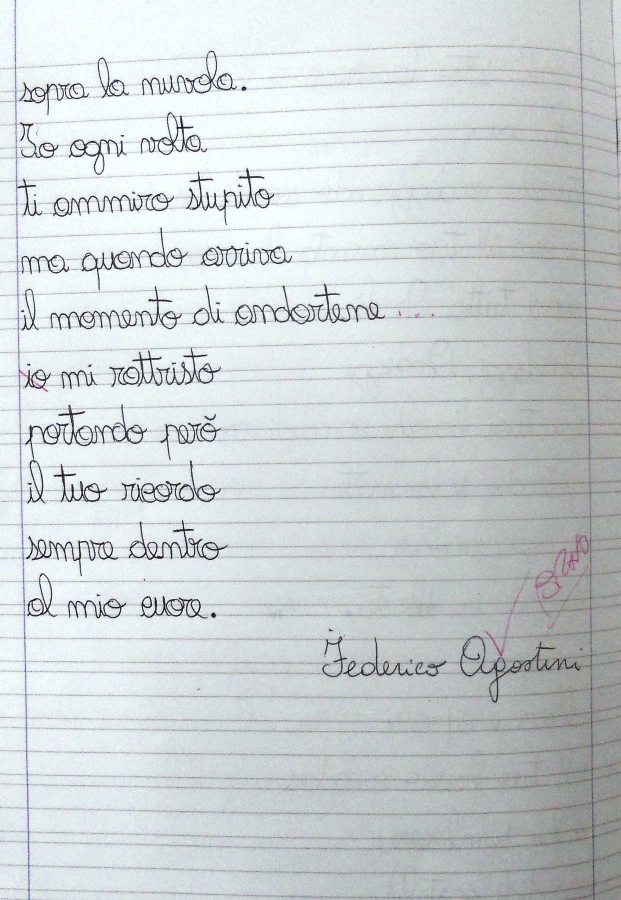 sopra la nuvola.
Io ogni volta
ti ammiro stupito
ma quando arriva
il momento di andartene ...
io mi rattristo
portando però
il tuo ricordo
sempre dentro
al mio cuore.
BRAVO
Federico Agostini